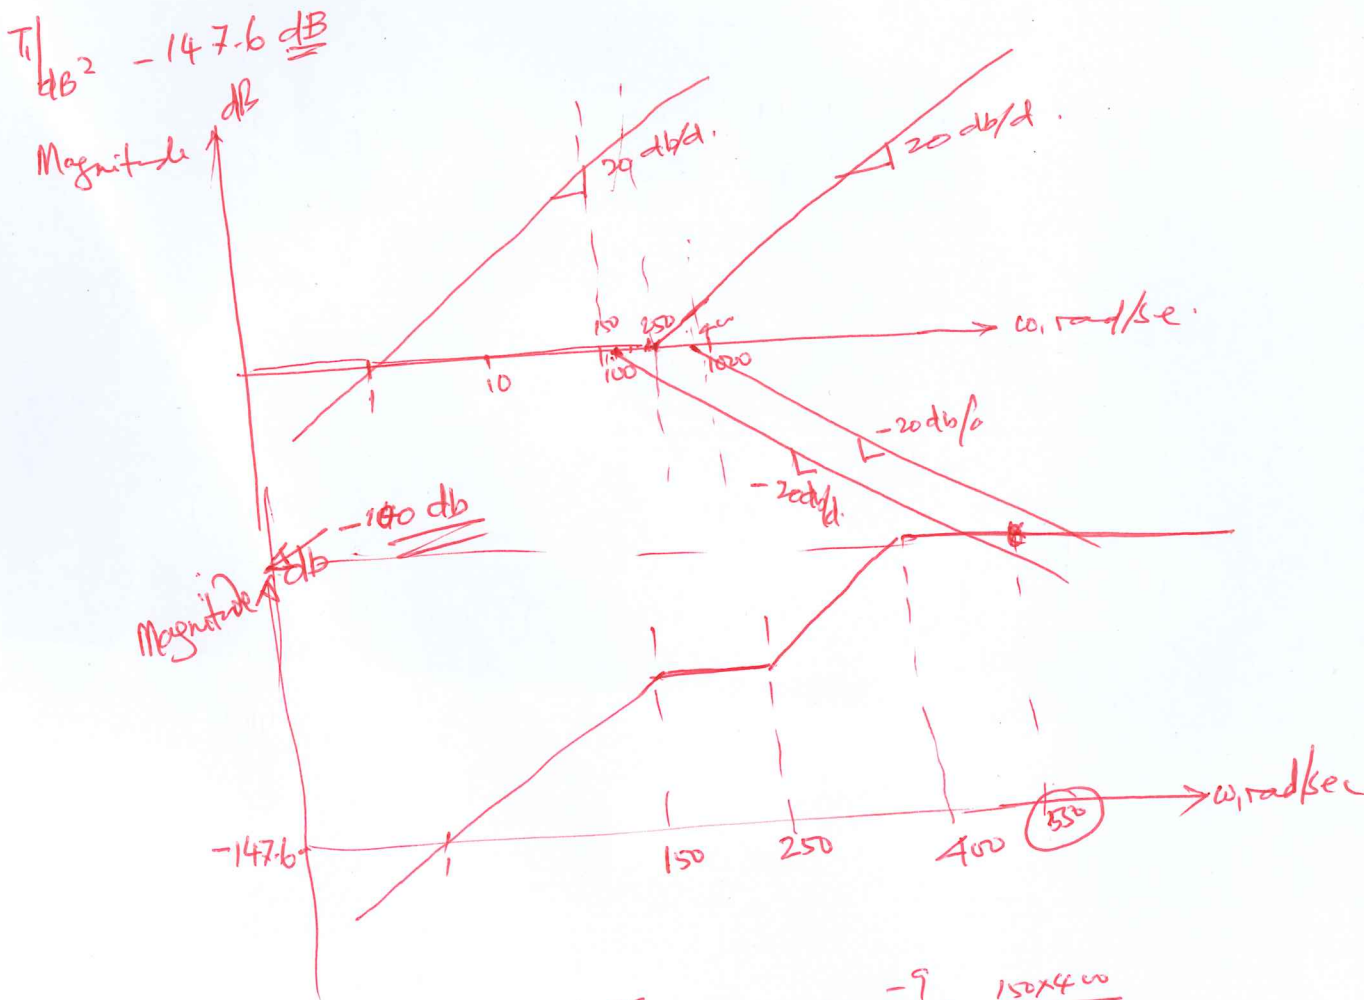 T1|dB = -147.6 dB
dB
Magnitude
20 db/d.
20 db/d.
150 250 400
ω, rad/se.
1 10 100 1000
-20 db/d
-20 db/d.
-100 db
db
Magnitude
ω, rad/sec
-147.6 1 150 250 400 550
-9 150x400